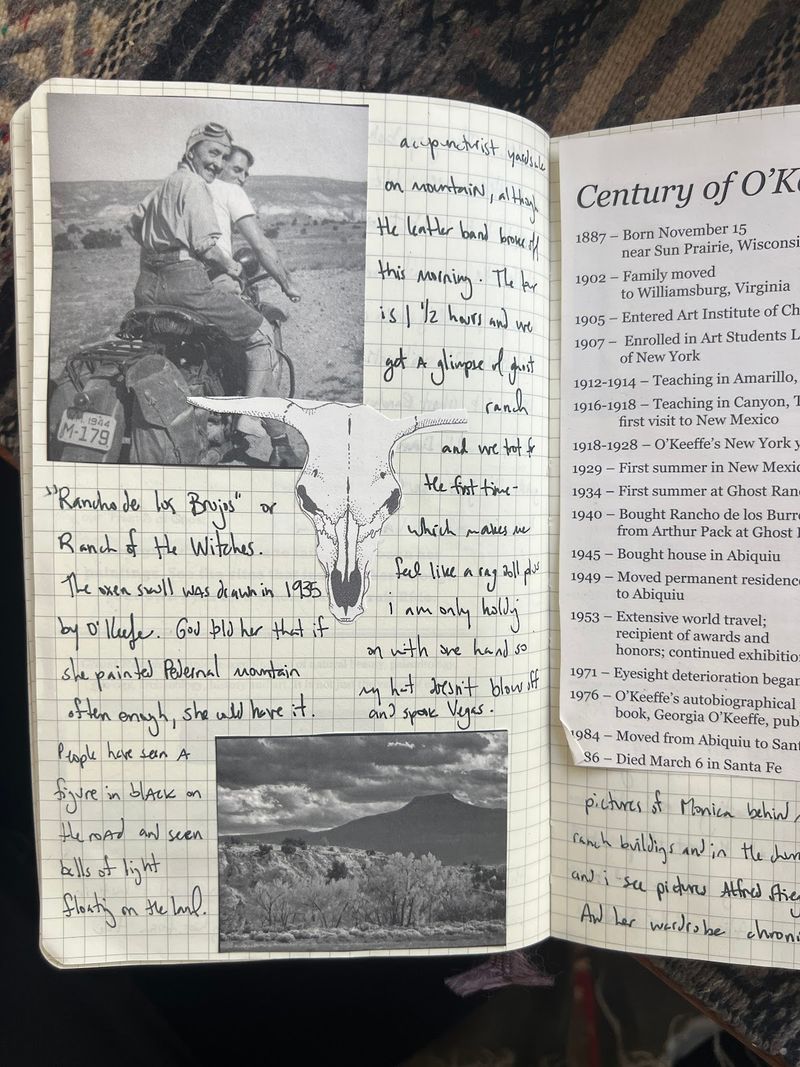 1944
M-179
acupuncturist yardsale
on mountain, although
the leather band broke off
this morning. The tour
is 1 1/2 hours and we
get A glimpse of ghost
ranch
and we trot for
the first time-
which makes me
feel like a rag doll plus
i am only holding
on with one hand so
my hat doesn't blow off
and spook Vegas.
"Rancho de los Brujos" or
Ranch of the Witches.
The oxen skull was drawn in 1935
by O'Keefe. God told her that if
she painted Pedernal mountain
often enough, she could have it.
People have seen A
figure in blAck on
the roAd and seen
balls of light
floating on the land.
Century of O'K
1887 – Born November 15
near Sun Prairie, Wisconsi
1902 – Family moved
to Williamsburg, Virginia
1905 – Entered Art Institute of Ch
1907 – Enrolled in Art Students L
of New York
1912-1914 – Teaching in Amarillo,
1916-1918 – Teaching in Canyon, T
first visit to New Mexico
1918-1928 – O'Keeffe's New York y
1929 – First summer in New Mexic
1934 – First summer at Ghost Ran
1940 – Bought Rancho de los Burr
from Arthur Pack at Ghost
1945 – Bought house in Abiquiu
1949 – Moved permanent residence
to Abiquiu
1953 – Extensive world travel;
recipient of awards and
honors; continued exhibitio
1971 – Eyesight deterioration began
1976 – O'Keeffe's autobiographical
book, Georgia O'Keeffe, pub
1984 – Moved from Abiquiu to Sant
86 – Died March 6 in Santa Fe
pictures of Monica behind
ranch buildings and in the
and i see pictures Alfred Stieg
And her wardrobe chroni